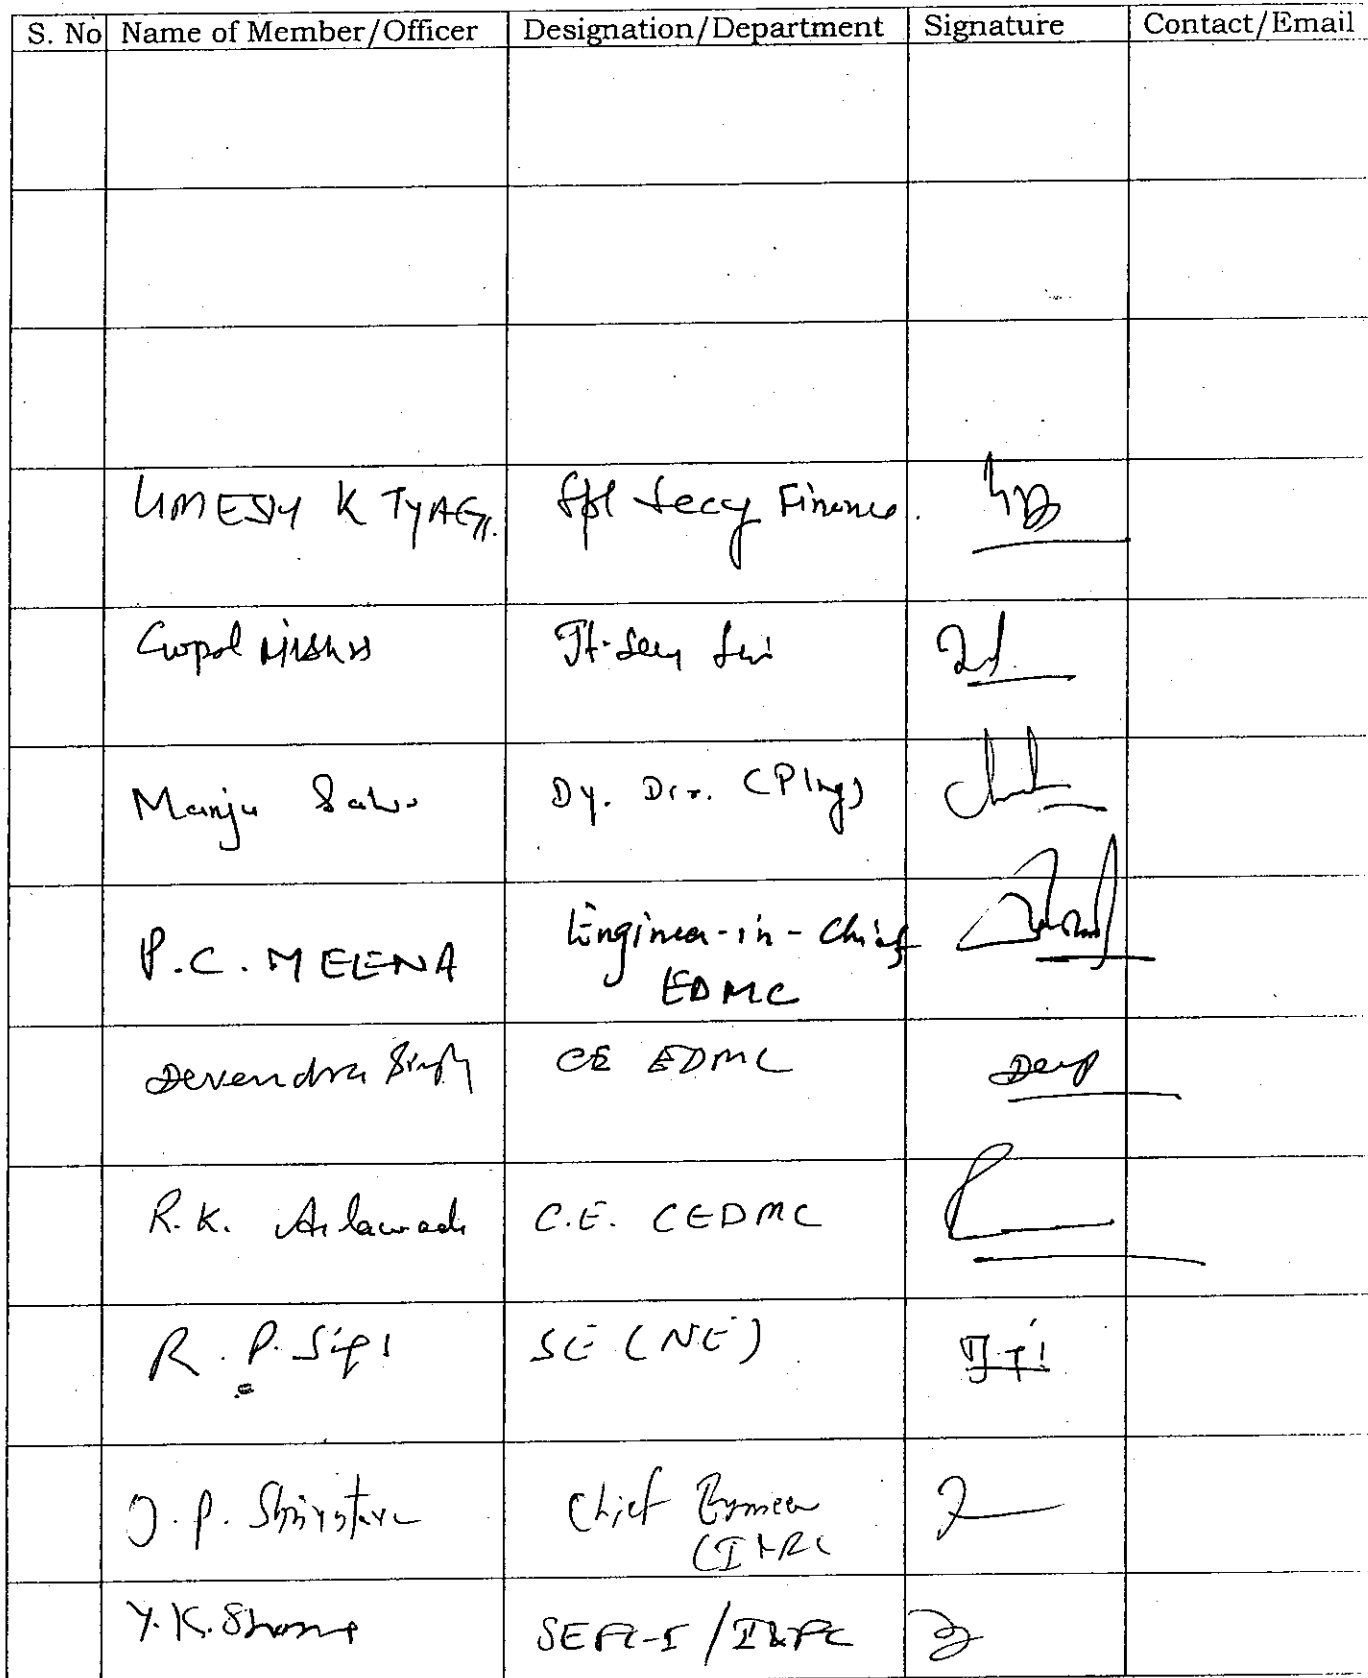 S. No Name of Member/Officer Designation/Department Signature Contact/Email
UMESH K TYAGI. Spl Secy Finance.
Gopal Mishra Jt. Secy
Manju Dy. Dir. (Plng)
P.C. MEENA Engineer-in-Chief
EDMC
Devendra Singh CE EDMC
R.K. C.E. CEDMC
R. P. SE (NE)
J.P. Shrivstava Chief Engineer
(I&FC
Y.K. Sharma SEFC-I / I&FC